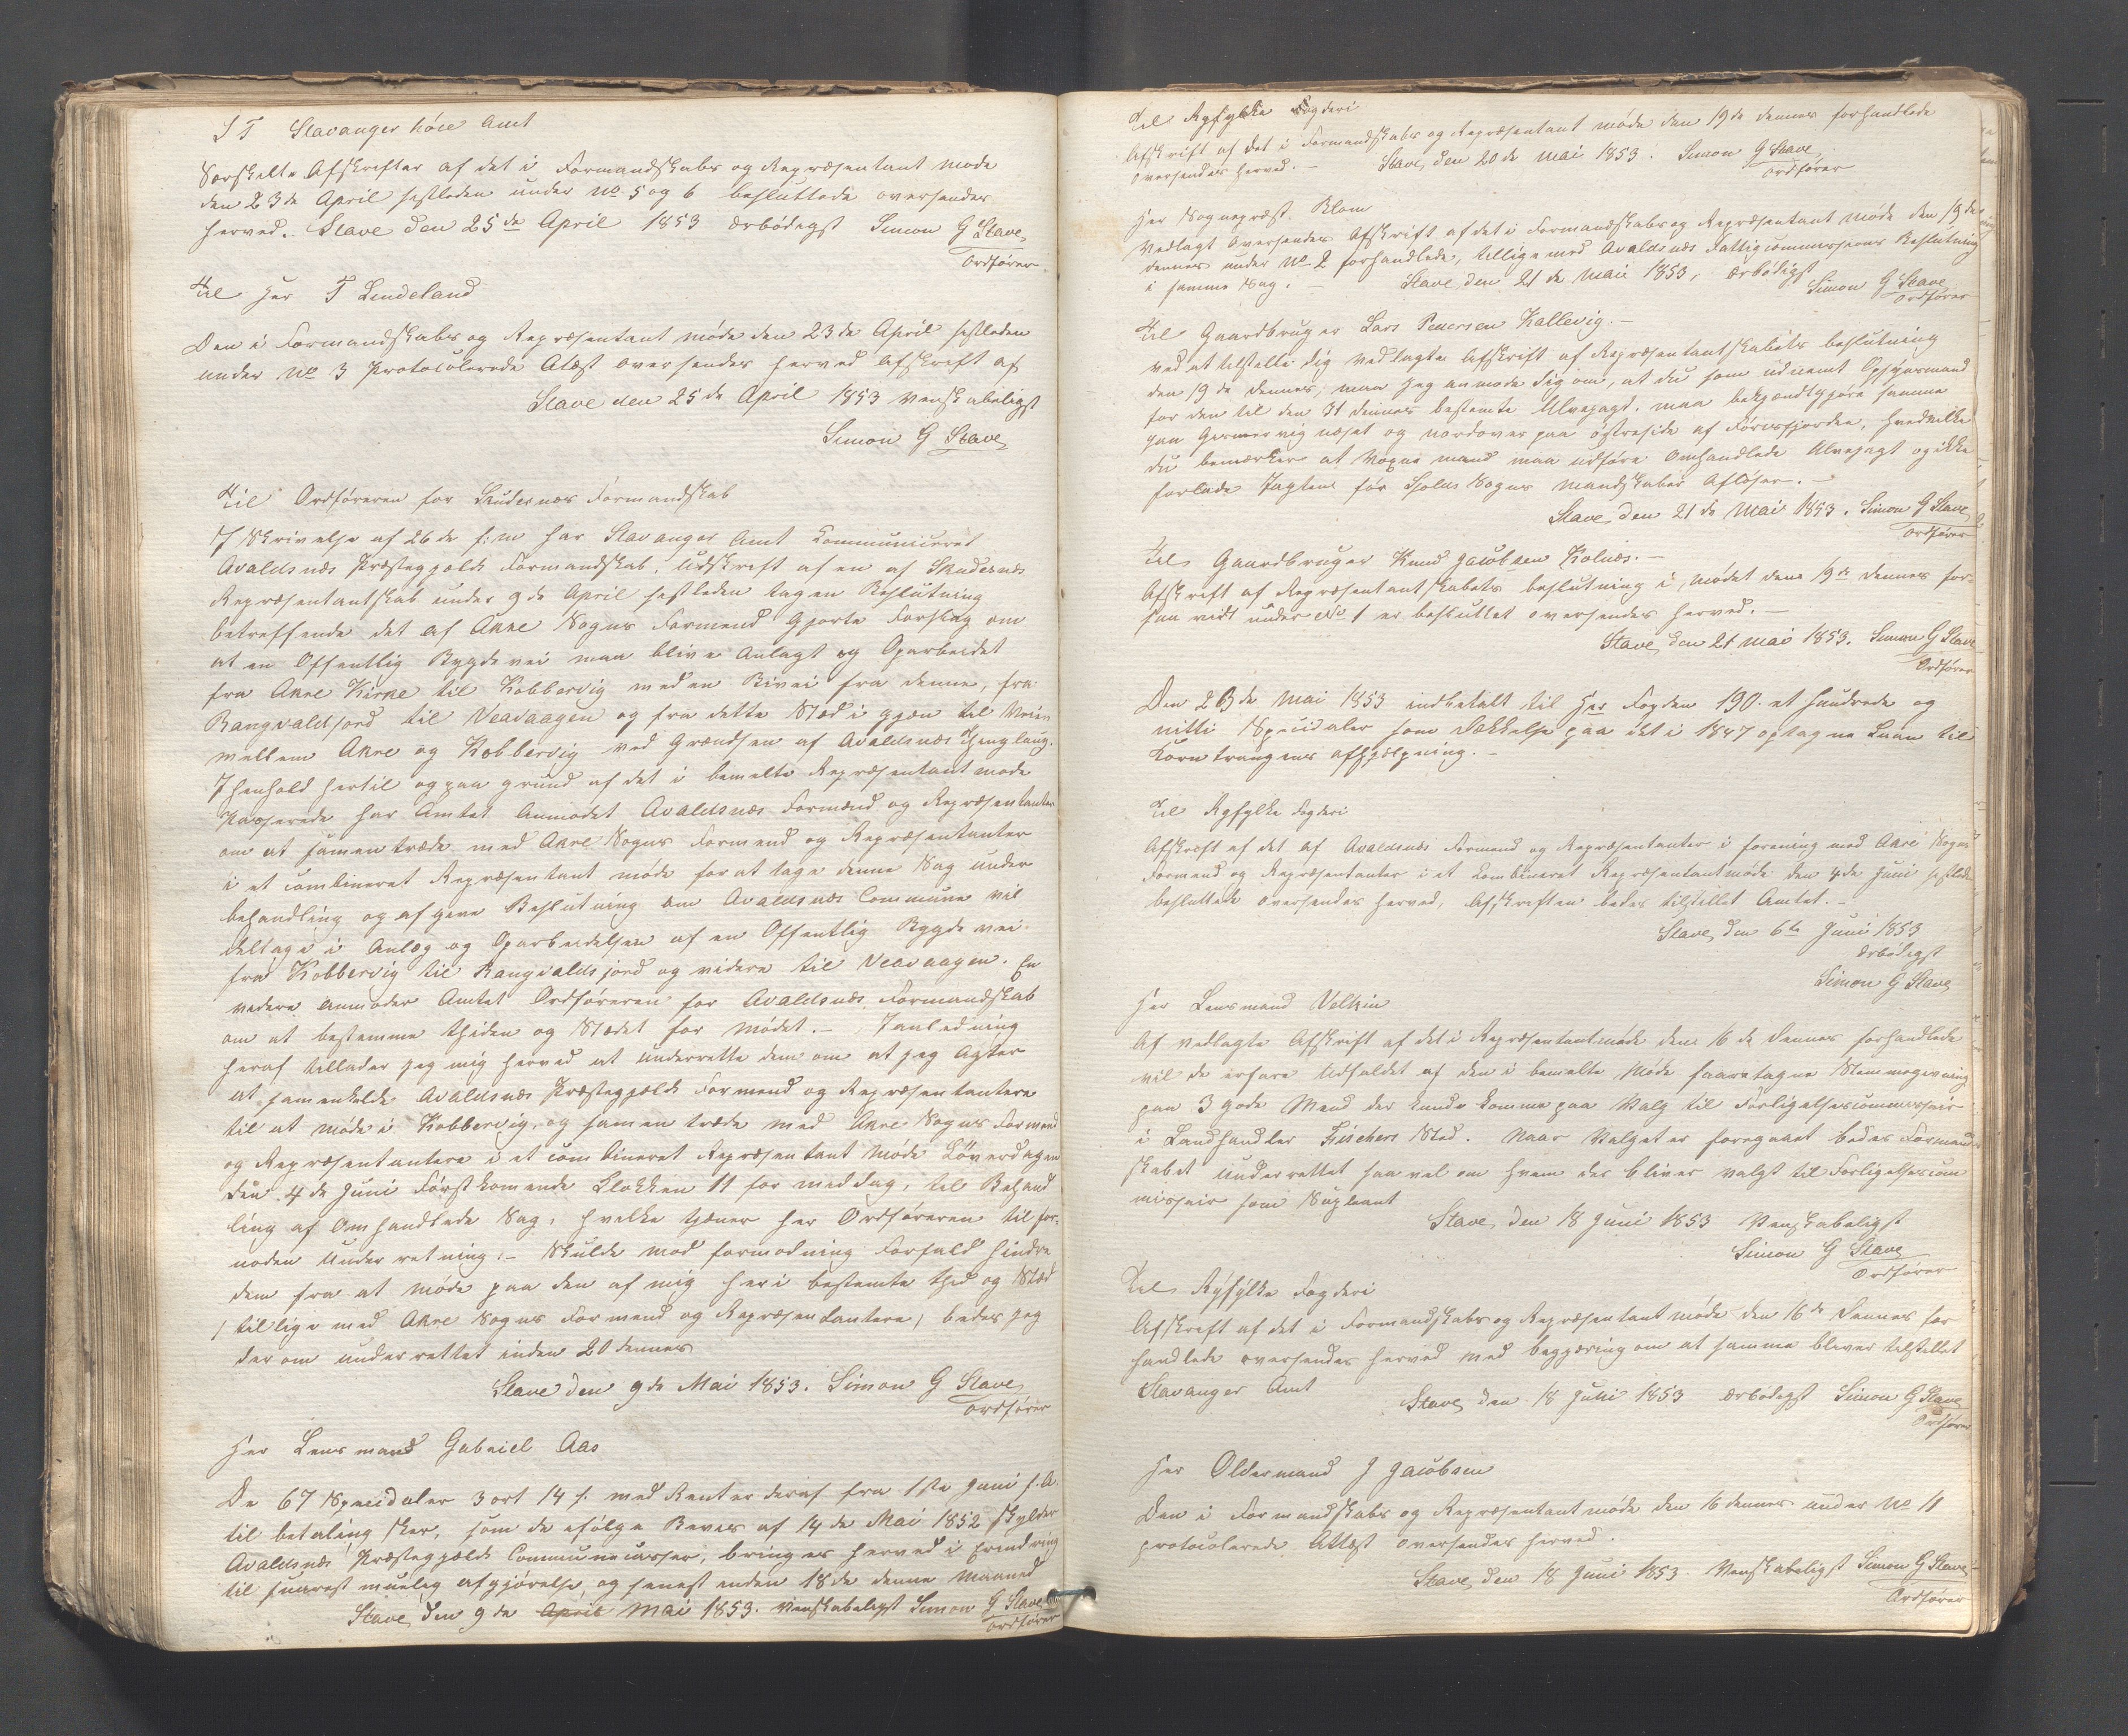 S T Stavanger höie Amt
Særskilte Afskrifter af det i Formandskabs og Repræsentant møde
den 23de April sistleden under No 5 og 6 besluttede oversendes
herved. Stave den 25de April 1853 ærbødigst Simon G Stave
Ordfører
Til Her T Lindeland
Den i Formandskabs og Repræsentant møde den 23de April sistleden
under No 3 Protocolerede Atæst oversendes herved Afskrift af
Stave den 25de April 1853 venskabeligst
Simon G Stave
Til Ordføreren for Skudesnæs Formandskab
I Skrivelse af 26de f: m har Stavanger Amt Kommuniceret
Avaldsnæs Præstegjelds Formandskab, Udskrift af en af Skudesnæs
Repræsentantskab under 9de April sistleden tagen Beslutning
betreffende det af Akre Sogns Formend Gjorte Forslag om
at en Offentlig Bygdevei maa blive Anlagt og Oparbeidet
fra Akre Kirke til Kobbervig med en Bivei fra denne, fra
Rangvaldsjord til Veavaagen og fra dette Sted i gjen til Veien
mellem Akre og Kobbervig ved Grændsen af Avaldsnæs Thenglaug.
I henhold hertil og paa grund af det i bemelte Repræsentant møde
Passerede har Amtet Anmodet Avaldsnæs Formænd og Repræsentanter
om at sammentræde med Akre Sogns Formend og Repræsentanter
i et combineret Repræsentant møde for at tage denne Sag under
behandling og afgive Beslutning om Avaldsnæs Commune vil
deltage i Anlæg og Oparbeidelsen af en Offentlig Bygdevei
fra Kobbervig til Rangvaldsjord og videre til Veavaagen. En
videre anmoder Amtet Ordføreren for Avaldsnæs Formandskab
om at bestemme Thiden og Stedet for mødet. – I anledning
heraf tillader jeg mig herved at underrette dem om at jeg Agter
at samenkalde Avaldsnæs Præstegjelds Formend og Repræsentantere
til at møde i Kobbervig, og samentræde med Akre Sogns Formend
og Repræsentantere i et combineret Repræsentant møde Löverdagen
den 4de Juni Førstkomende Klokken 11 for middag, til Behand
ling af Omhandlede Sag, hvilke tjener Her Ordføreren til for-
noden Underretning. – Skulde mod formodning Forfald hindre
dem fra at møde paa den af mig heri bestemte Thid og Sted
/ tillige med Akre Sogns Formend og Repræsentantere / bedes jeg
derom underrettet inden 20 dennes
Stave den 9de Mai 1853. Simon G Stave
Ordfører
Her Lensmand Gabriel Aas
De 67 Speciedaler 3 ort 14 s. med Renter deraf fra 1ste Juni f. A.
til betaling sker, som de ifølge Beves af 14de Mai 1852 skylder
Avaldsnæs Præstegjelds Communecasser, bringes herved i Erindring
til snarest muelig afgjörelse, og senest inden 18de denne Maaned
Stave den 9de April Mai 1853. Venskabeligst Simon G Stave
Ordfører
Til Ryfylke Fogderi
Afskrift af det i Formandskabs og Repræsentant møde den 19de dennes forhandlede
oversendes herved. – Stave den 20de Mai 1853. Simon G Stave
Ordfører
Her Sognepræst Blom
Vedlagt oversendes Afskrift af det i Formandskabs og Repræsentant møde den 19de
dennes under No 2 forhandlede, tillige med Avaldsnæs Fattigcommissions Beslutning
i samme Sag. – Stave den 21de Mai 1853, ærbødigst
Simon G Stave
Ordfører
Til Gaardbruger Lars Pedersen Kallevig. –
Ved at tilstelle dig vedlagte Afskrift af Repræsentantskabets beslutning
den 19de dennes, maa jeg anmode dig om, at du som udnemt Opsynsmand
for den til den 31 dennes bestemte Ulvejagt, maa bekjendtgjöre samme
paa næset og nordover paa østreside af Førresfjorden, hvedvilke
du bemærker at Voxne mand maa udføre Omhandlede Ulvejagt og ikke
forlade Jagten før Tjolds Sogns Mandskaber Afløser. –
Stave den 21de Mai 1853. Simon G Stave
Ordfører
Til Gaardbruger Knud Jacobsen Kolnæs. –
Afskrift af Repræsentantskabets beslutning i mødet dene 19de dennes for-
saa vidt under No 1 er besluttet oversendes herved. –
Stave den 21 Mai 1853. Simon G Stave
Ordfører
Den 23de Mai 1853 indbetalt til Her Fogden 190. et hundrede og
nitti Speciedaler som Dekkelse paa det i 1847 optagne Laan til
Korntrangens afhjelpning. –
Til Ryfylke Fogderi
Afskrift af det af Avaldsnæs Formend og Repræsentanter i forening med Akre Sogns
Formend og Repræsentanter i et Kombineret Repræsentantmøde den 4de Juni sistleden
besluttede oversendes herved, Afskriften bedes tilstillet Amtet. –
Stave den 6te Juni 1853
ærbødigst
Simon G Stave
Her Lensmand Velkin
Af vedlagte Afskrift af det i Repræsentantmøde den 16de dennes forhandlede
vil de erfare Udfaldet af den i bemelte Møde foretagne Stemmegivning
paa 3 gode Mend der kunde komme paa Valg til Forligelsescommissair
i Landhandler Fischers Sted. Naar Valget er foregaaet bedes Formand-
skabet underrettet saavel om hvem der bliver valgt til Forligelsescom
missair som Supleant
Stave den 18 Juni 1853 Venskabeligst
Simon G Stave
Ordfører
Til Ryfylke Fogderi
Afskrift af det i Formandskabs og Repræsentant møde den 16de dennes for
handlede oversendes herved med begjæring om at samme bliver tilstillet
Stavanger Amt Stave den 18 Juni 1853 ærbødigst Simon G Stave
Ordfører
Her Oldermand J Jacobsen
Den i Formandskabs og Repræsentant møde den 16 dennes under No 11
protocolerede Attæst oversendes herved.
Stave den 18 Juni 1853 Venskabeligst Simon G Stave
Ordfører